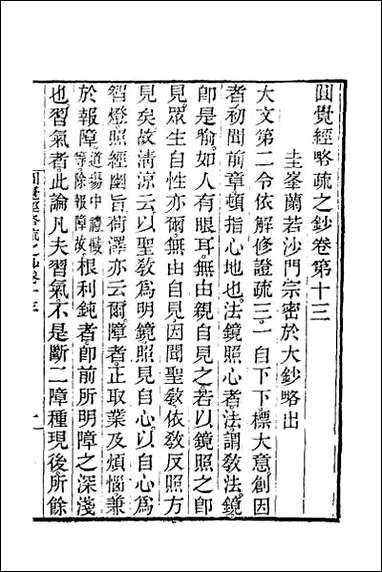 圓覺經略疏之鈔卷第十三
圭峯蘭若沙門宗密於大鈔略出
大文第二令依解修證疏三。一自下下標大意創因
者初聞前章頓指心地也。法鏡照心者法謂敎法。鏡
卽是喻。如人有眼耳。無由親自見之若以鏡照之卽
見。眾生自性亦爾。無由自見。因聞聖敎依敎反照方
見矣。故清涼云。以聖敎爲明鏡照見自心。以自心爲
智燈照經幽旨荷澤亦云爾障者正取業及煩惱兼
於報障。道場中禮懺等除報障故根利鈍者。卽前所明障之深淺
也習氣者此論凡夫習氣。不是斷二障種現後。所餘